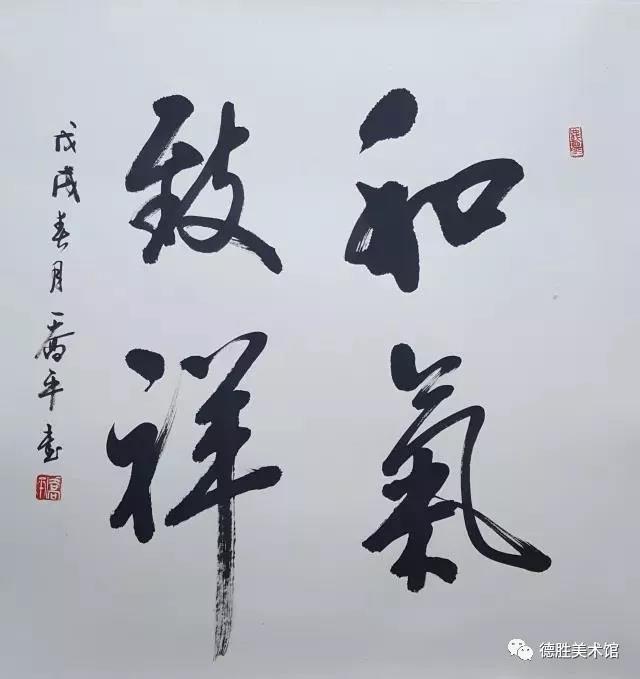 和氣
致祥
戊戌春月喬平書
德胜美术馆